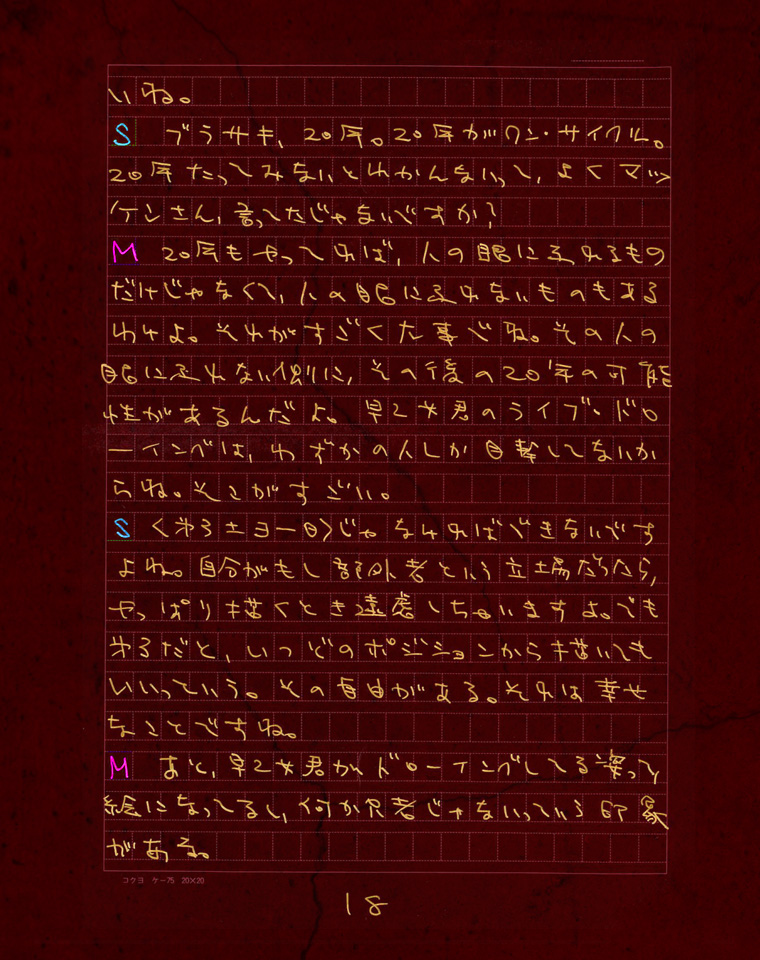 いね。
S ブラサキ、20年。20年がワン・サイクル。
20年たってみないとわかんないって、よくマツ
ケンさん、言ってたじゃないですか?
M 20年もやってれば、人の眼にふれるもの
だけじゃなくて、人の眼にふれないものもある
わけよ。それがすごく大事でね。その人の
眼にふれない側に、その後の20年の可能
性があるんだよ。早乙女君のライブ・ドロ
ーイングは、わずかの人しか目撃してないか
らね。そこがすごい。
S 〈第3土ヨー日〉じゃなければできないです
よね。自分がもし部外者という立場だったら、
やっぱり描くとき遠慮しちゃいますよ。でも
第3だと、いつどのポジションから描いても
いいっていう。その自由がある。それは幸せ
なことですね。
M あと、早乙女君がドローイングしてる姿って、
絵になってるし、何か只者じゃないっていう印象
がある。
コクヨ ケー75 20×20
18